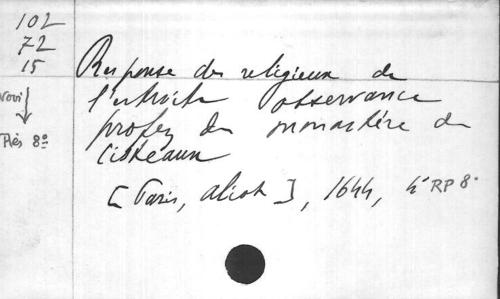 102
72
15
Response des religieux de
l'estroite observance
profez du monastère de
Cisteaux
[Paris, aliot], 1644, 4° RP 8°
↓
Rés 8°